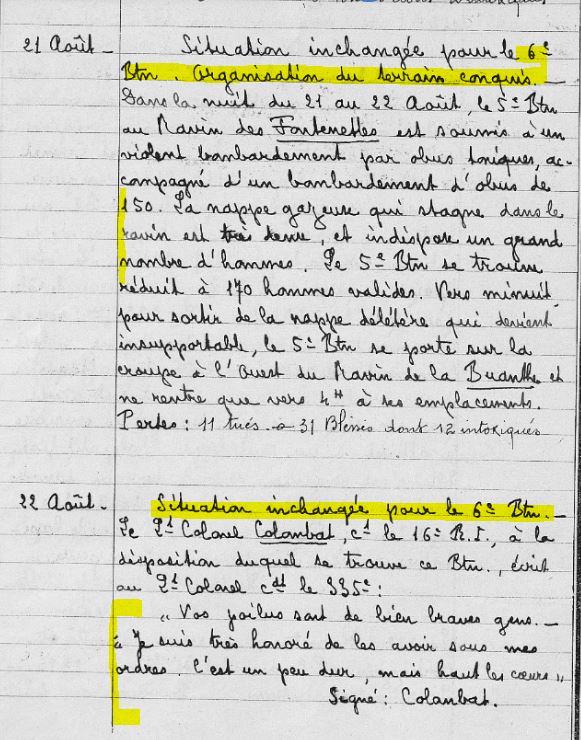 21 Août_ Situation inchangée pour le 6e
Btn. Organisation du terrain conquis._
Dans la nuit du 21 au 22 Août, le 5e Btn
au Ravin des Fontenelles est soumis à un
violent bombardement par obus toniques, ac-
compagné d'un bombardement d'obus de
150. La nappe gazeuse qui stagne dans le
ravin est très tenue, et indispose un grand
nombre d'hommes. Le 5e Btn se trouve
réduit à 170 hommes valides. Vers minuit
pour sortir de la nappe délétère qui devient
insupportable, le 5e Btn se porte sur la
croupe à l'Ouest du Ravin de la Buanthe et
ne rentre que vers 4H à ses emplacements.
Pertes : 11 tués _ 31 Blessés dont 12 intoxiqués
22 Août_ Situation inchangée pour le 6e Btn._
Le Lt Colonel Colombat, ct le 16e R.I., à la
disposition duquel se trouve ce Btn., écrit
au Lt Colonel cdt le 335e :
"Vos poilus sont de bien braves gens._
"Je suis très honoré de les avoir sous mes
ordres. C'est un peu dur, mais haut les cœurs"
Signé : Colombat.